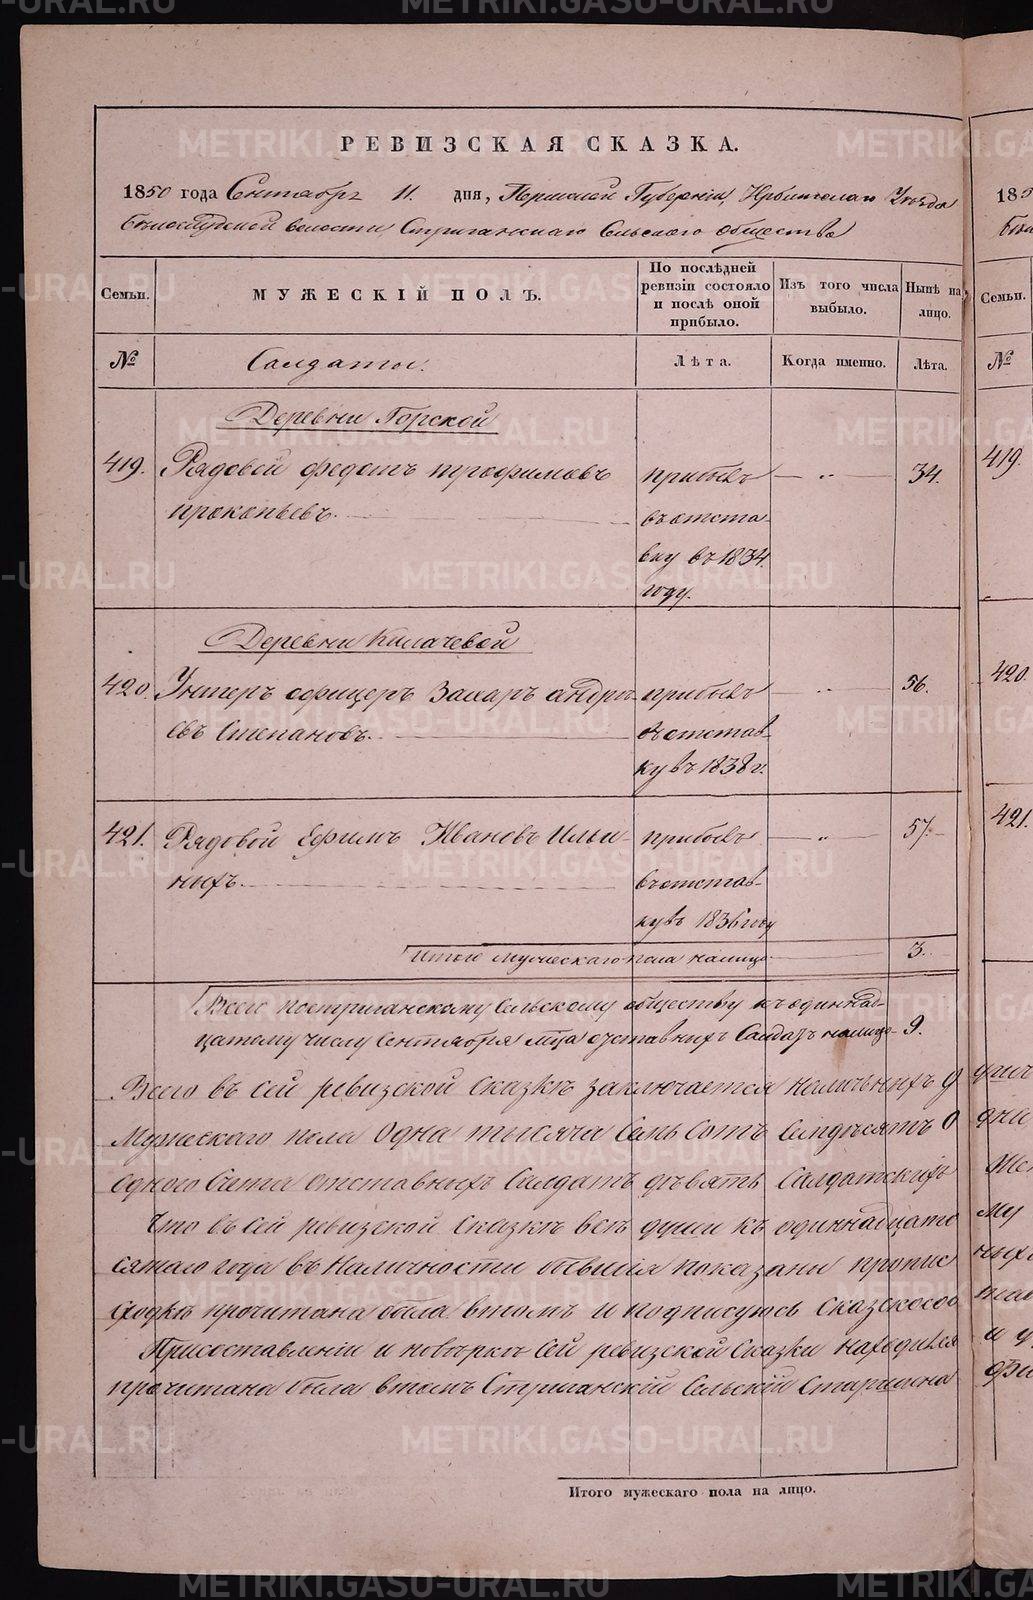 РЕВИЗСКАЯ СКАЗКА.
1850 года Сентября 11. дня, Пермской Губерніи, Ирбитскаго Уезда
Белослудской волости Стриганскаго Сельскаго общества
Семьи.
МУЖЕСКІЙ ПОЛЪ.
По послѣдней ревизіи состояло и послѣ оной прибыло.
Изъ того числа выбыло.
Нынѣ на лицо.
№
Салдаты.
Лѣта.
Когда именно.
Лѣта.
Деревни Горской
419. Рядовой федотъ трофимовъ прибылъ — " — 34.
прокопьевъ. въ отста-
вку въ 1834
году.
Деревни Килачевой
420. Унтеръ офицеръ Захаръ андре- прибылъ — " — 56.
евъ Степановъ. въ отстав-
ку въ 1838 г.
421. Рядовой Ефимъ Ивановъ Ильи- прибылъ — " — 57.
ныхъ. въ отстав-
ку въ 1836 году
Итого мужескаго пола налицо 3.
Всего по стриганскому сельскому обществу къ одиннад-
цатому числу Сентября м-ца отставныхъ Салдатъ налицо 9.
Всего въ сей ревизской сказкѣ заключается наличныхъ
Мужескаго пола Одна тысяча Семь Сотъ Семдѣсятъ
одного Сига отставныхъ Салдатъ дѣвять Салдатскихъ
Что въ сей ревизской сказкѣ всѣ души къ одиннадцато
сятаго года въ наличности бывшія показаны пропис
прочитана была въ томъ и подписуюсь сказскосо
При составленіи и поверкѣ Сей ревизской Сказки находился
прочитана была въ томъ Стриганскій Сельскій Старшина
Итого мужескаго пола на лицо.
185
Семьи.
№
419.
420.
421.
METRIKI.GASO-URAL.RU